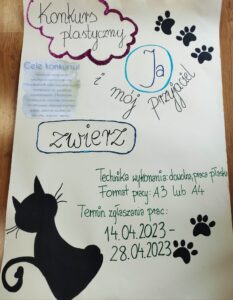 Konkurs
plastyczny
Ja
i mój przyjaciel
zwierz
Cele konkursu:
Technika wykonania: dowolna, praca płaska
Format pracy: A3 lub A4
Termin zgłaszania prac:
14.04.2023 -
28.04.2023